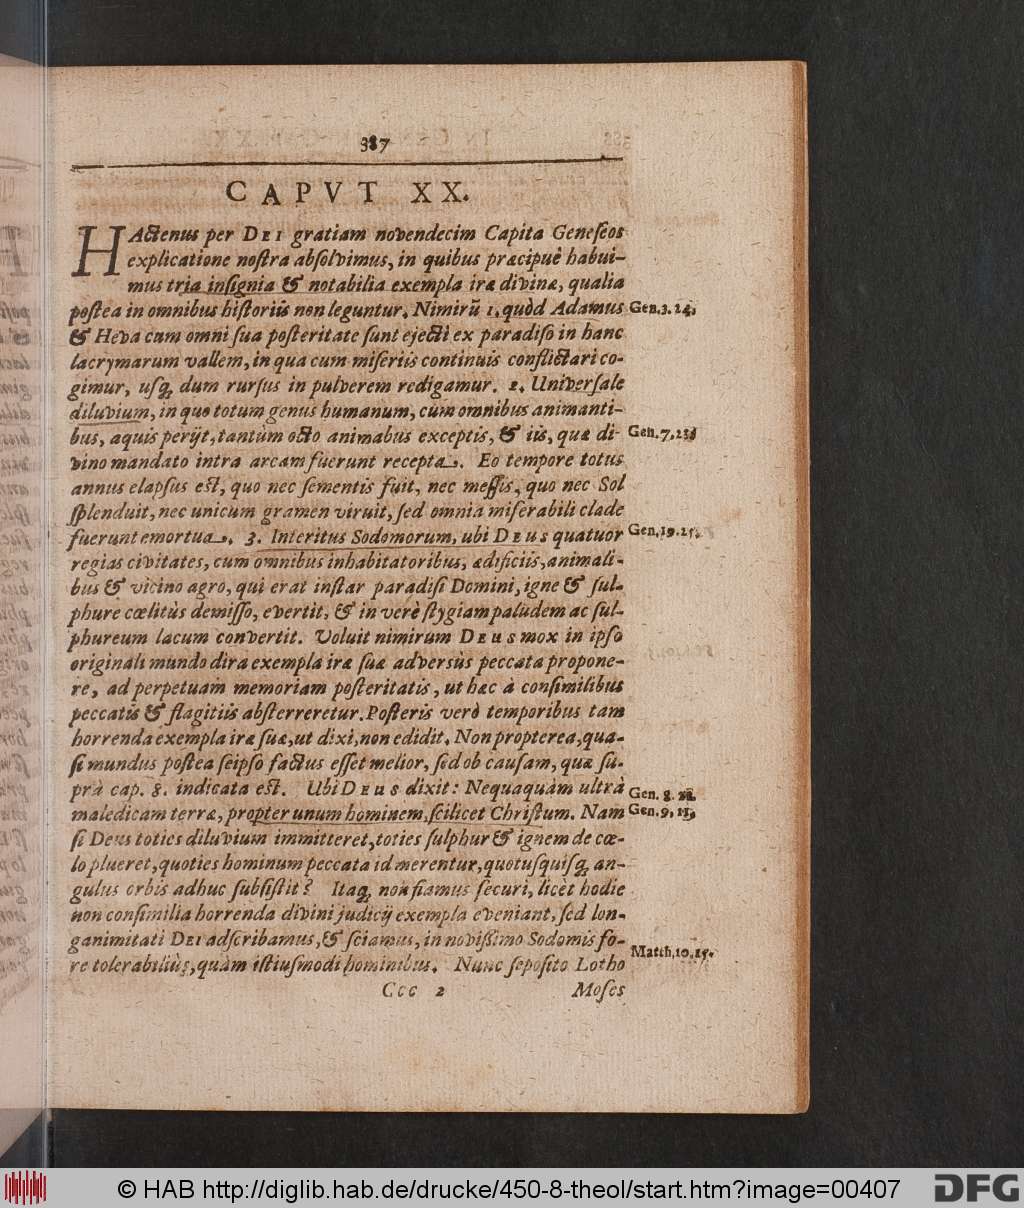 387
CAPVT XX.
HActenus per DEI gratiam novendecim Capita Geneseos
explicatione nostra absolvimus, in quibus præcipuè habui-
mus tria insignia & notabilia exempla iræ divinæ, qualia
postea in omnibus historiis non leguntur. Nimirũ 1. quòd Adamus
Gen. 3. 24.
& Heva cum omni sua posteritate sunt ejecti ex paradiso in hanc
lacrymarum vallem, in qua cum miseriis continuis conflictari co-
gimur, usq; dum rursus in pulverem redigamur. 2. Universale
diluvium, in quo totum genus humanum, cum omnibus animanti-
bus, aquis perijt, tantùm octo animabus exceptis, & iis, quæ di-
Gen. 7, 23.
vino mandato intra arcam fuerunt recepta. Eo tempore totus
annus elapsus est, quo nec sementis fuit, nec messis, quo nec Sol
splenduit, nec unicum gramen viruit, sed omnia miserabili clade
fuerunt emortua. 3. Interitus Sodomorum, ubi DEUS quatuor
Gen. 19. 25.
regias civitates, cum omnibus inhabitatoribus, ædificiis, animali-
bus & vicino agro, qui erat instar paradisi Domini, igne & sul-
phure cœlitùs demisso, evertit, & in verè stygiam paludem ac sul-
phureum lacum convertit. Voluit nimirum DEUS mox in ipso
originali mundo dira exempla iræ suæ adversùs peccata propone-
re, ad perpetuam memoriam posteritatis, ut hæc à consimilibus
peccatis & flagitiis absterreretur. Posteris verò temporibus tam
horrenda exempla iræ suæ, ut dixi, non edidit. Non propterea, qua-
si mundus postea seipso factus esset melior, sed ob causam, quæ su-
prà cap. 8. indicata est. Ubi DEUS dixit: Nequaquàm ultrà
Gen. 8. 21.
maledicam terræ, propter unum hominem, scilicet Christum. Nam
Gen. 9, 11,
si Deus toties diluvium immitteret, toties sulphur & ignem de cœ-
lo plueret, quoties hominum peccata id merentur, quotusquisq; an-
gulus orbis adhuc subsistit? Itaq; non fiamus securi, licèt hodie
non consimilia horrenda divini judicij exempla eveniant, sed lon-
ganimitati DEI adscribamus, & sciamus, in novissimo Sodomis fo-
re tolerabiliùs, quàm istiusmodi hominibus. Nunc seposito Lotho
Matth. 10. 15.
Ccc 2
Moses
© HAB http://diglib.hab.de/drucke/450-8-theol/start.htm?image=00407
DFG